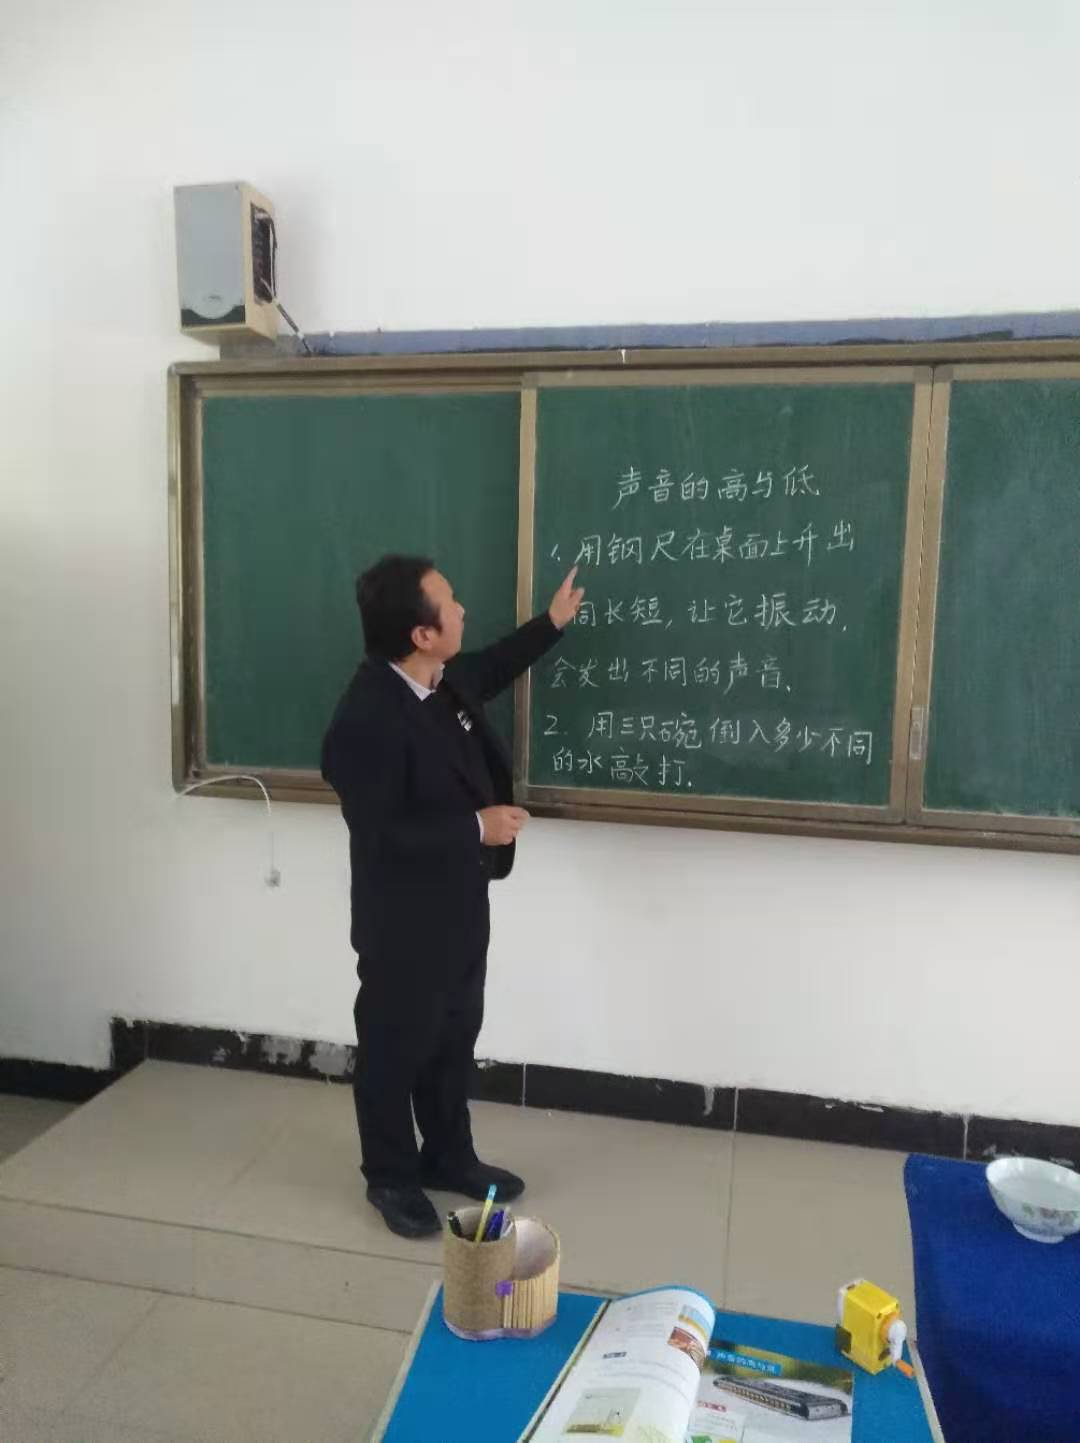 声音的高与低
1. 用钢尺在桌面上升出
同长短，让它振动，
会发出不同的声音。
2. 用三只碗倒入多少不同
的水高敲打。
声音的高与低